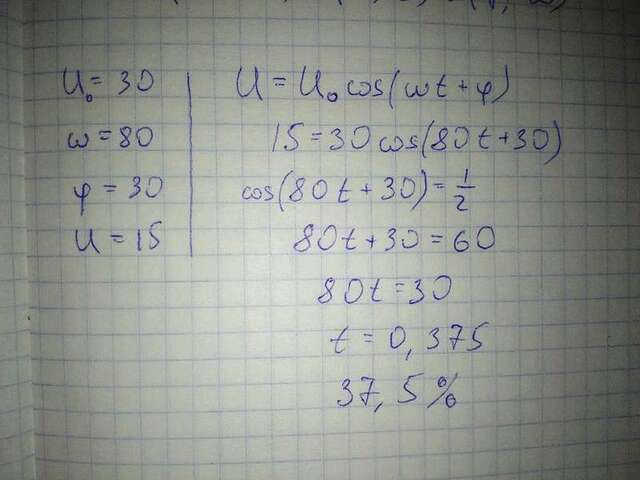 U₀ = 30
ω = 80
φ = 30
U = 15
U = U₀ cos(ωt + φ)
15 = 30 cos(80t + 30)
cos(80t + 30) = 1/2
80t + 30 = 60
80t = 30
t = 0,375
37,5%